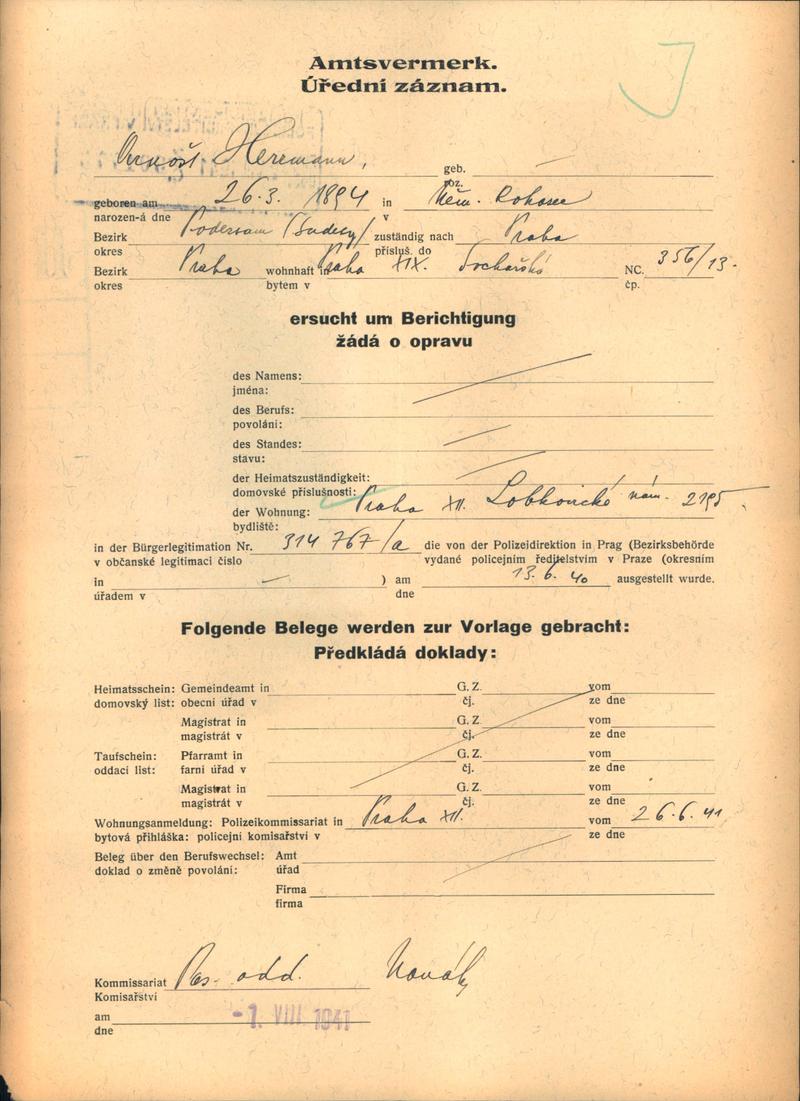 Amtsvermerk.
Úřední záznam.
Arnošt Heremann,
geb.
roz.
geboren am 26.3. 1894 in Něm.
narozen-á dne v
Bezirk Podersam (Sudety) zuständig nach Praha
okres přísluš. do
Bezirk Praha wohnhaft in Praha XIX. Sochařská NC. 356/13.
okres bytem v čp.
ersucht um Berichtigung
žádá o opravu
des Namens:
jména:
des Berufs:
povolání:
des Standes:
stavu:
der Heimatszuständigkeit:
domovské příslušnosti:
der Wohnung: Praha XII. Lobkovické nám. 2195
bydliště:
in der Bürgerlegitimation Nr. 314 767/a die von der Polizeidirektion in Prag (Bezirksbehörde
v občanské legitimaci číslo vydané policejním ředitelstvím v Praze (okresním
in ) am 13. 6. 40 ausgestellt wurde.
úřadem v dne
Folgende Belege werden zur Vorlage gebracht:
Předkládá doklady:
Heimatsschein: Gemeindeamt in G. Z. vom
domovský list: obecní úřad v čj. ze dne
Magistrat in G. Z. vom
magistrát v čj. ze dne
Taufschein: Pfarramt in G. Z. vom
oddací list: farní úřad v čj. ze dne
Magistrat in G. Z. vom
magistrát v čj. ze dne
Wohnungsanmeldung: Polizeikommissariat in Praha XII. vom 26.6.41
bytová přihláška: policejní komisařství v ze dne
Beleg über den Berufswechsel: Amt
doklad o změně povolání: úřad
Firma
firma
Kommissariat Pas. odd. Novák
Komisařství
am -1. VIII. 1941
dne